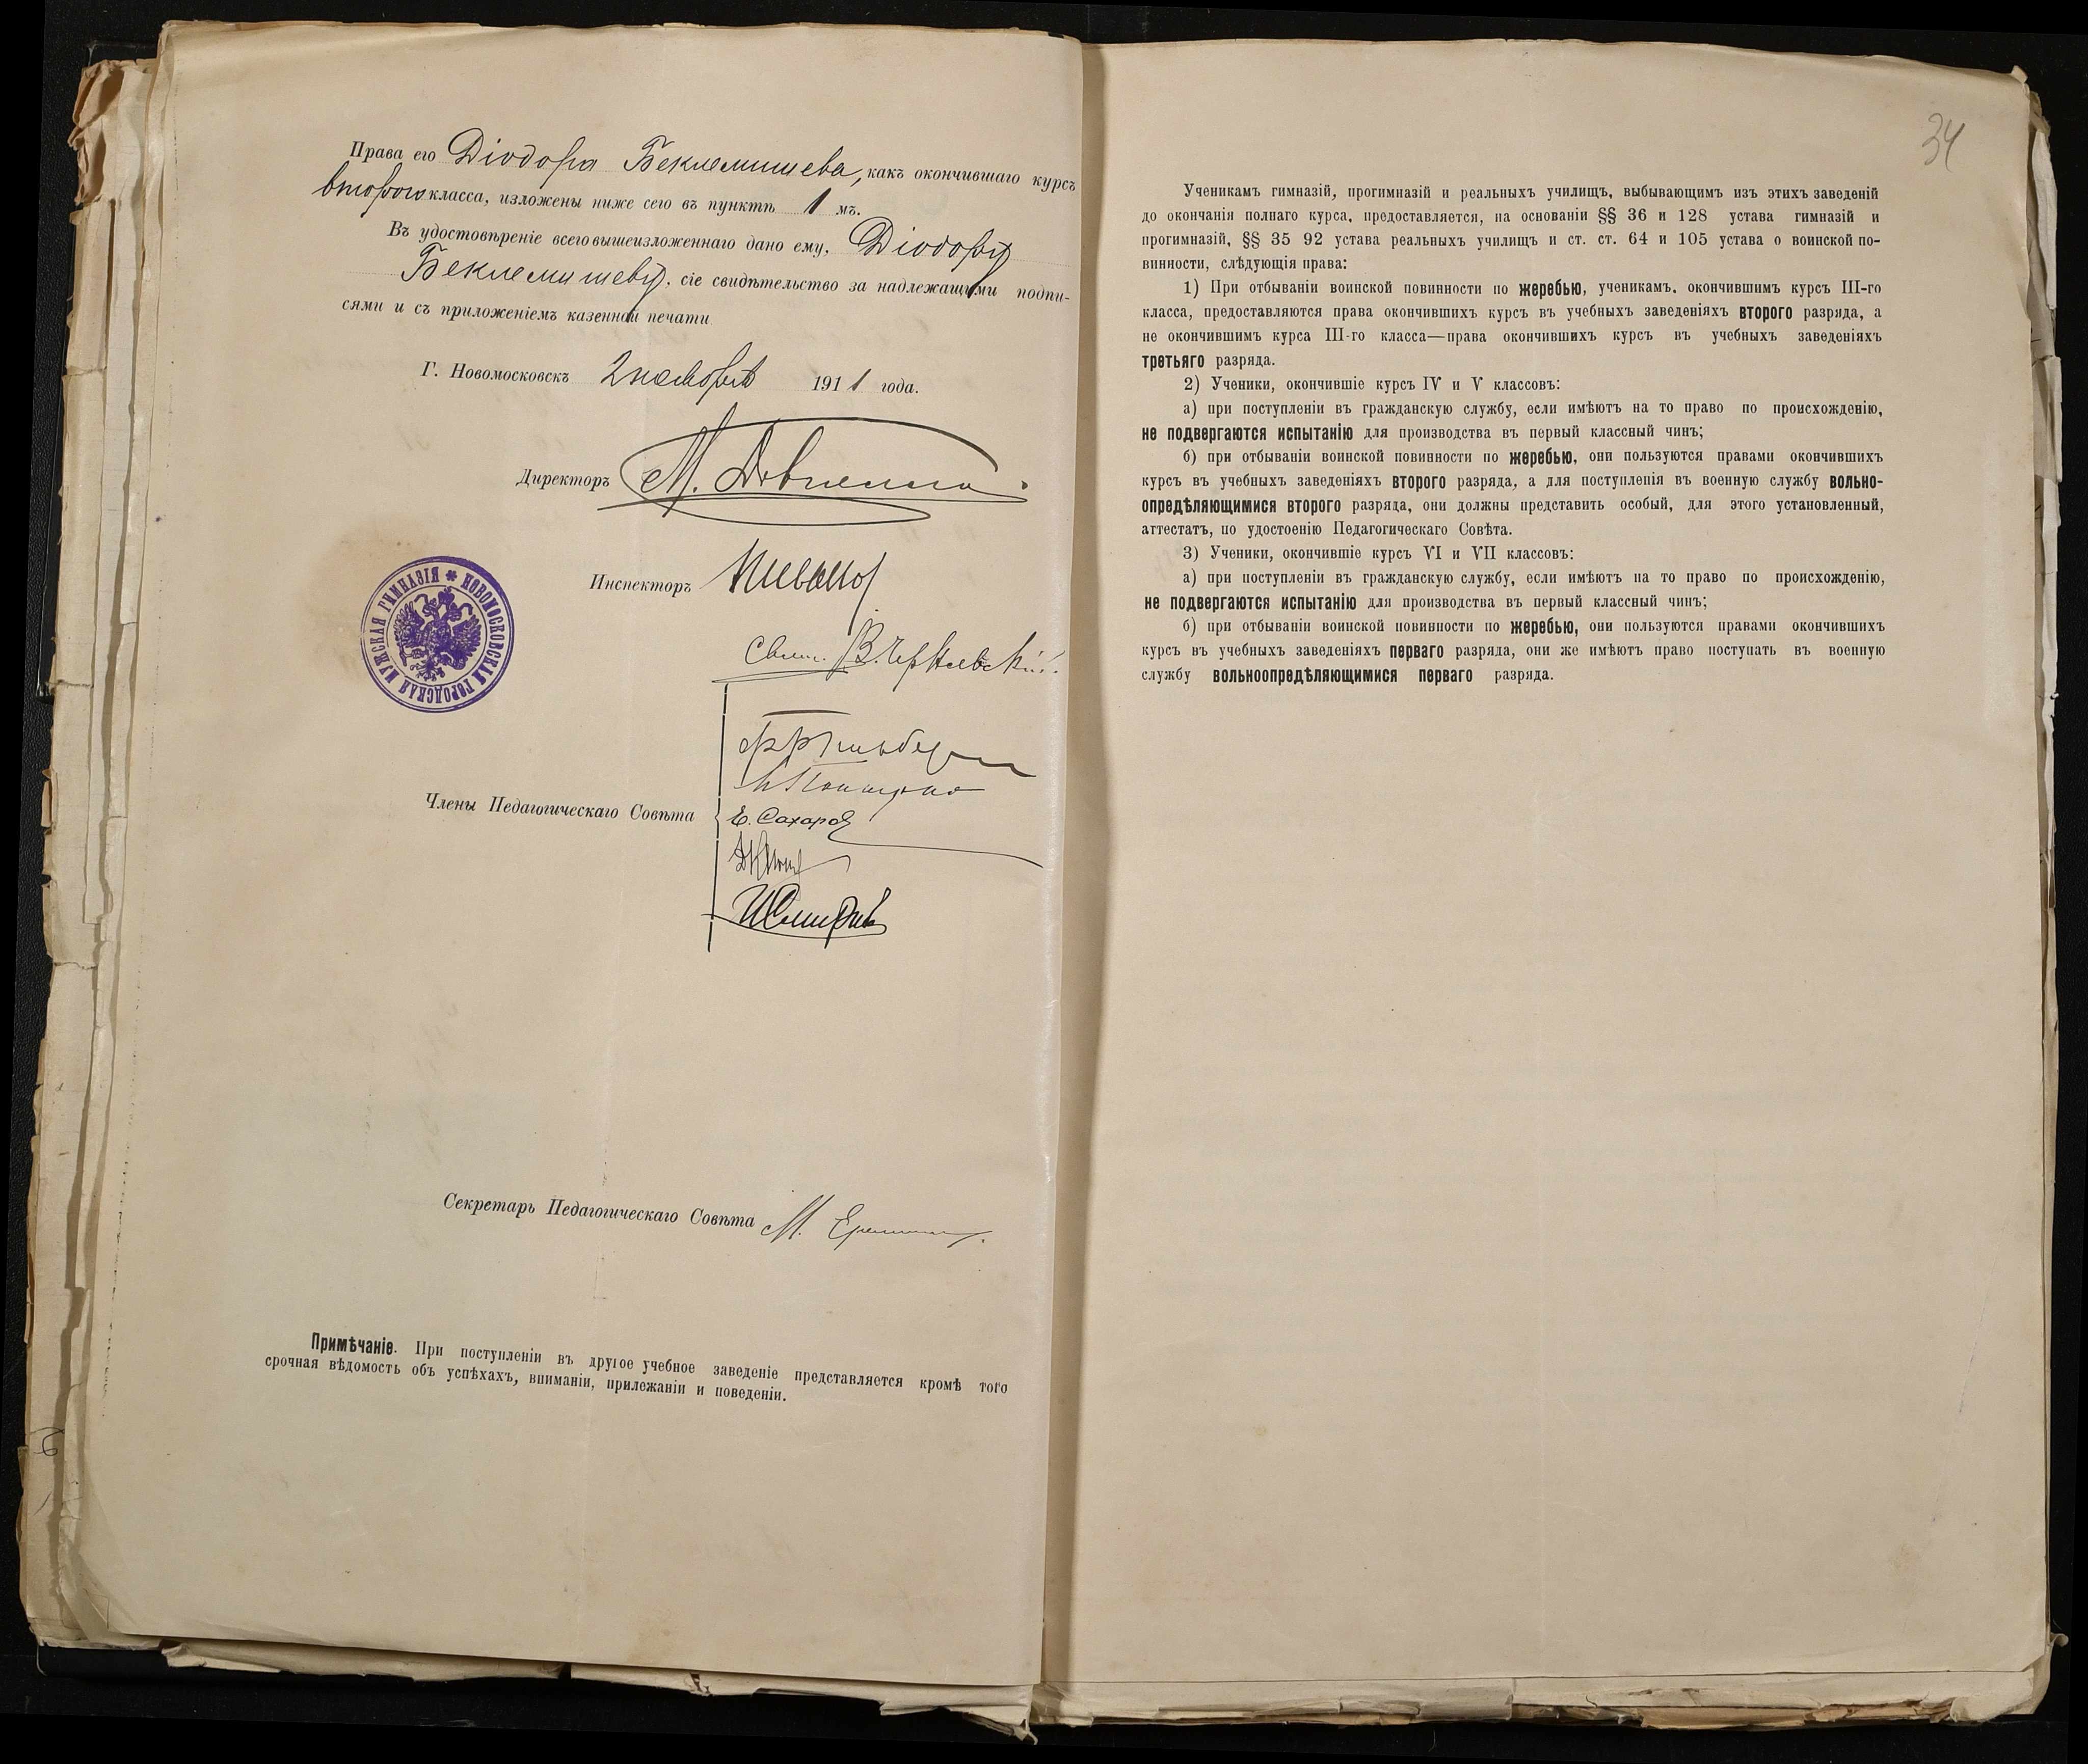 Права его Діодора Беклемишева, какъ окончившаго курсъ
второго класса, изложены ниже сего въ пунктѣ 1 мъ.
Въ удостовѣреніе всего вышеизложеннаго дано ему, Діодору
Беклемишеву, сіе свидѣтельство за надлежащими подпи-
сями и съ приложеніемъ казенной печати
Г. Новомосковскъ 2 ноября 1911 года.
Директоръ М.
Инспекторъ
НОВОМОСКОВСКАЯ ГОРОДСКАЯ МУЖСКАЯ ГИМНАЗІЯ
Свящ. В.
Члены Педагогическаго Совѣта
Е. Сахаров
Секретарь Педагогическаго Совѣта М.
Примѣчаніе. При поступленіи въ другое учебное заведеніе представляется кромѣ того
срочная вѣдомость объ успѣхахъ, вниманіи, прилежаніи и поведеніи.
34
Ученикамъ гимназій, прогимназій и реальныхъ училищъ, выбывающимъ изъ этихъ заведеній
до окончанія полнаго курса, предоставляется, на основаніи §§ 36 и 128 устава гимназій и
прогимназій, §§ 35 92 устава реальныхъ училищъ и ст. ст. 64 и 105 устава о воинской по-
винности, слѣдующія права:
1) При отбываніи воинской повинности по жеребью, ученикамъ. окончившимъ курсъ III-го
класса, предоставляются права окончившихъ курсъ въ учебныхъ заведеніяхъ второго разряда, а
не окончившимъ курса III-го класса—права окончившихъ курсъ въ учебныхъ заведеніяхъ
третьяго разряда.
2) Ученики, окончившіе курсъ IV и V классовъ:
а) при поступленіи въ гражданскую службу, если имѣютъ на то право по происхожденію,
не подвергаются испытанію для производства въ первый классный чинъ;
б) при отбываніи воинской повинности по жеребью, они пользуются правами окончившихъ
курсъ въ учебныхъ заведеніяхъ второго разряда, а для поступленія въ военную службу вольно-
опредѣляющимися второго разряда, они должны представить особый, для этого установленный,
аттестатъ, по удостоенію Педагогическаго Совѣта.
3) Ученики, окончившіе курсъ VI и VII классовъ:
а) при поступленіи въ гражданскую службу, если имѣютъ на то право по происхожденію,
не подвергаются испытанію для производства въ первый классный чинъ;
б) при отбываніи воинской повинности по жеребью, они пользуются правами окончившихъ
курсъ въ учебныхъ заведеніяхъ перваго разряда, они же имѣютъ право поступать въ военную
службу вольноопредѣляющимися перваго разряда.